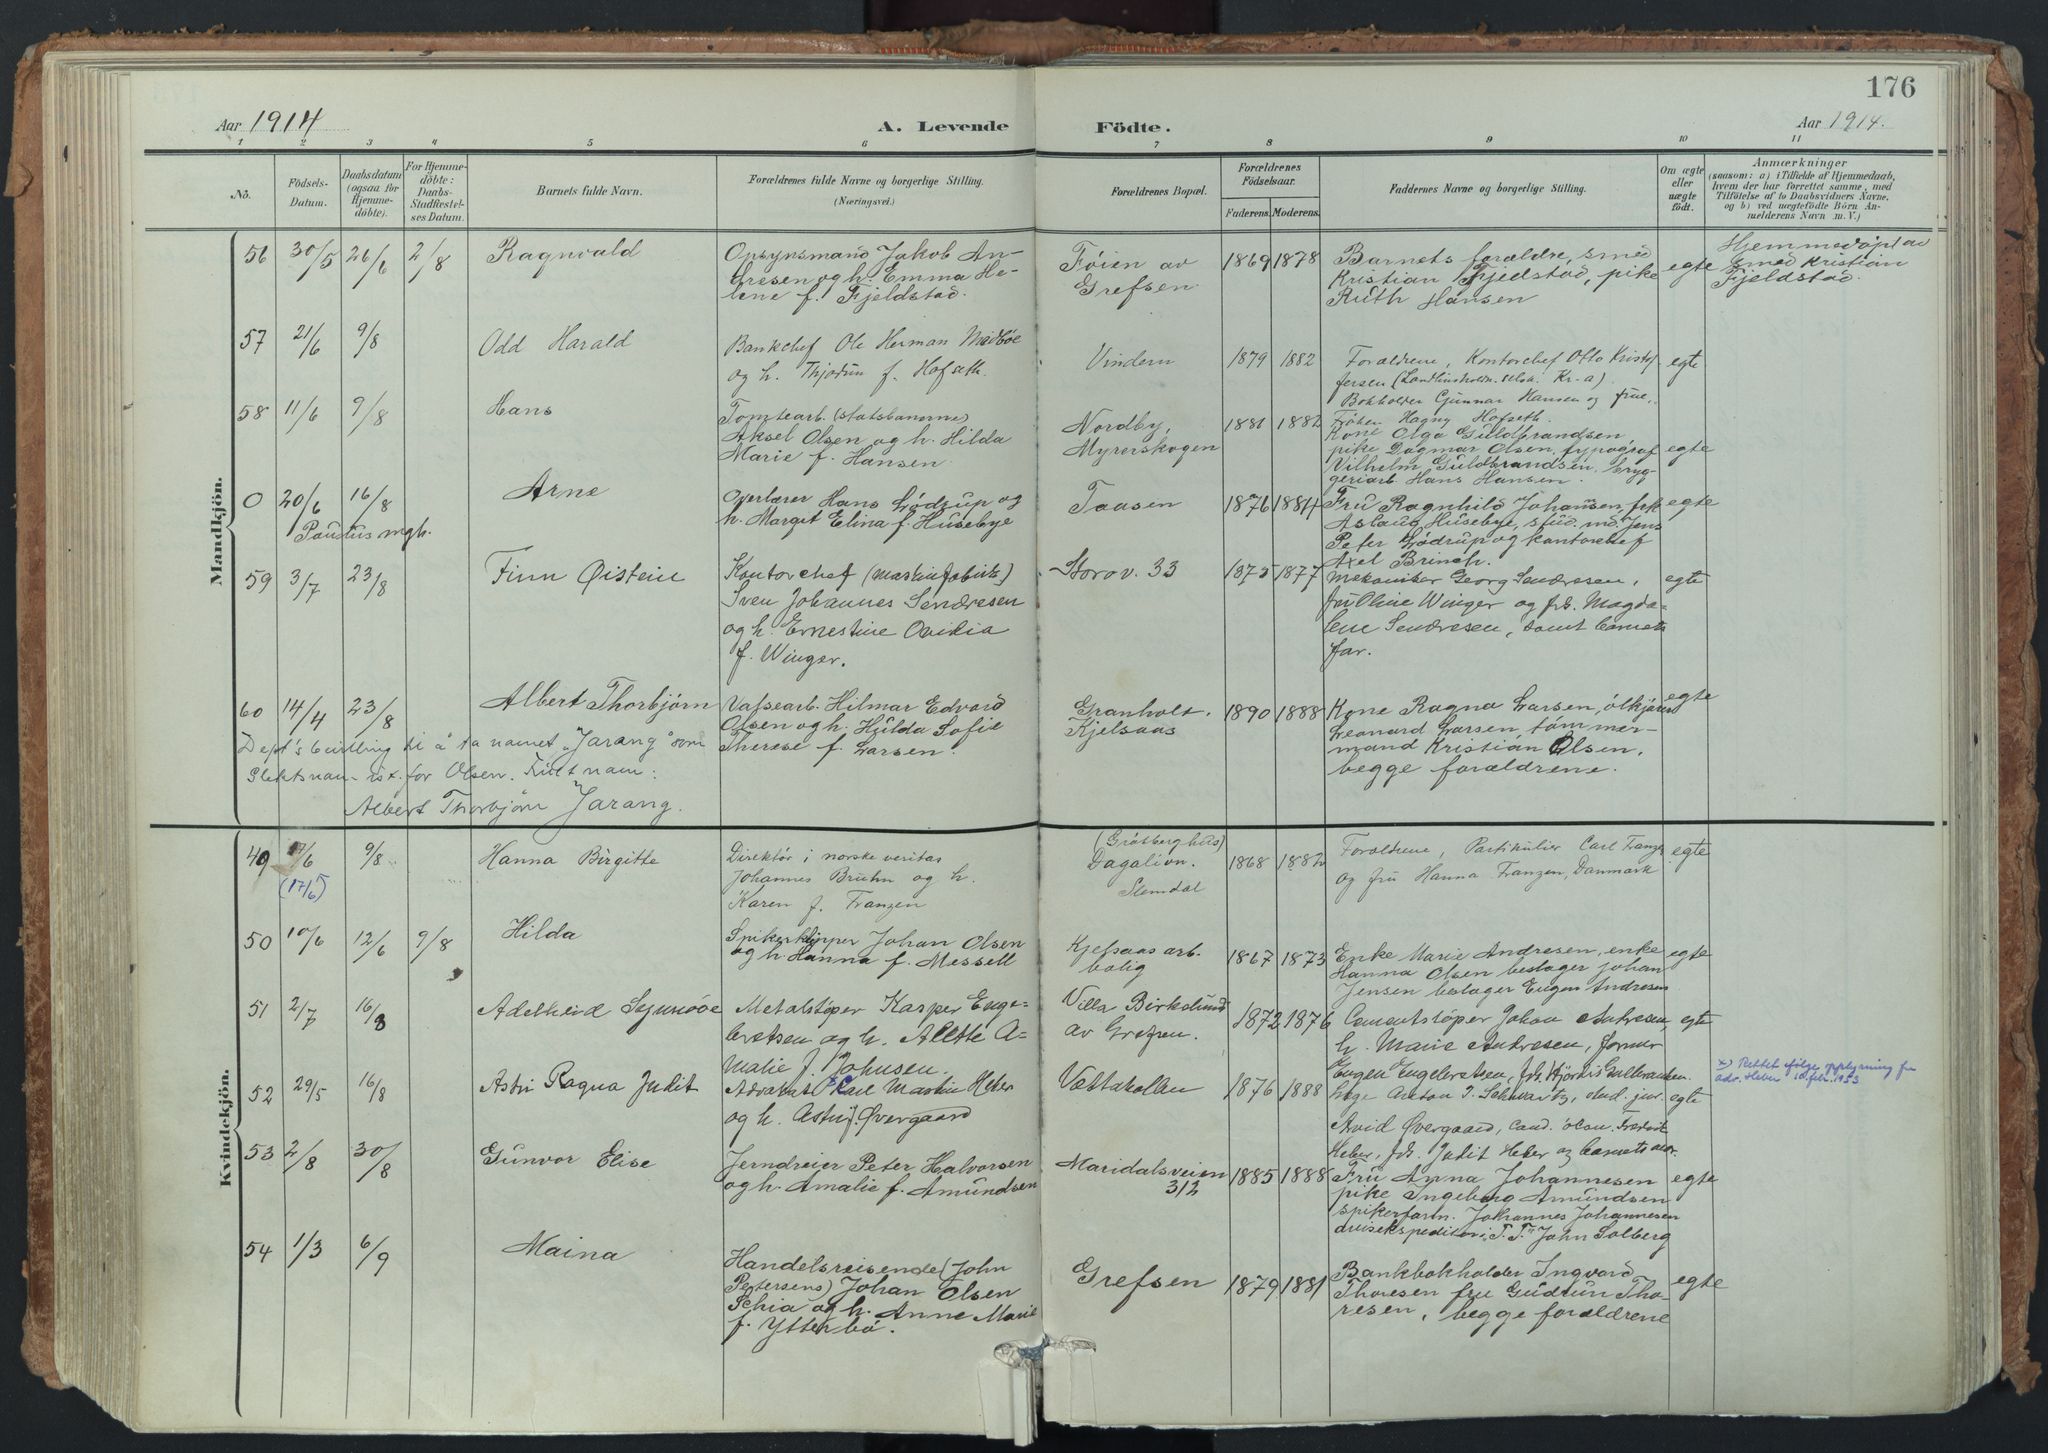 176
Aar 1914
A. Levende Födte.
Aar 1914.
1 2 3 4 5 6 7 8 9 10 11
No.
Födsels-
Datum.
Daabsdatum
(ogsaa for
Hjemme-
döbte).
For Hjemme-
döbte:
Daabs-
Stadfestel-
ses Datum.
Barnets fulde Navn.
Forældrenes fulde Navne og borgerlige Stilling.
(Næringsvei.)
Forældrenes Bopæl.
Forældrenes
Födselsaar.
Faderens. Moderens.
Faddernes Navne og borgerlige Stilling.
Om ægte
eller
uægte
født.
Anmærkninger
(saasom: a) i Tilfælde af Hjemmedaab,
hvem der har forrettet samme, med
Tilföielse af to Daabsvidners Navne,
og b) ved uægtefödte Börn An-
melderens Navn m. V.)
Mandkjön.
56 30/5 26/6 2/8 Ragnvald
Opsynsmand Jakob An-
dresen og h. Emma He-
lene f. Fjeldstad.
Föien av
Grefsen
1869 1878
Barnets forældre, smed
Kristian Fjeldstad, pike
Ruth Hansen
egte
Hjemmedöpt av
smed Kristian
Fjeldstad.
57 21/6 9/8 Odd Harald
Bankchef Ole Herman Medböe
og h. Thjodun f. Hofseth.
Vindern
1879 1882
Forældrene, Kontorchef Otto Kristof-
fersen (Kr-a).
Bokholder Gunnar Hansen og frue,
Fröken Hagny Hofseth.
egte
58 11/6 9/8 Hans
Tomtearb. (statsbanerne)
Aksel Olsen og h. Hilda
Marie f. Hansen
Nordby,
Myrerskogen
1881 1882
Kone Olga Guldbrandsen,
pike Dagmar Olsen, typograf
Vilhelm Guldbrandsen, bryg-
geriarb. Hans Hansen.
egte
0 20/6 16/8 Arne
Paulus mgh.
Overlærer Hans Lödrup og
h. Margit Elina f. Husebye
Taasen
1876 1884
Fru Ragnhild Johansen, frk
Aslaug Husebye, stud. md. Jens
Peter Lödrup og kontorchef
Axel Brinch.
egte
59 3/7 23/8 Finn Öistein
Kontorchef
Sven Johannes Sendresen
og h. Ernestine Ovidia
f. Winger.
Storov. 33
1875 1877
Mekaniker Georg Sendresen,
fru Oline Winger og frk. Magda-
lene Sendresen, samt barnets
far.
egte
60 14/4 23/8 Albert Thorbjörn
Valsearb. Hilmar Edvard
Olsen og h. Hulda Sofie
Therese f. Larsen.
Granholt.
Kjelsaas
1890 1888
Kone Ragna Larsen, ölkjörer
Leonard Larsen, töm mer-
mand Kristian Olsen,
begge forældrene.
egte
Dept's bevilling til å ta navnet "Jarang" som
slektsnavn ist. for Olsen. Fullt navn:
Albert Thorbjörn Jarang.
Kvindekjön.
49 17/6 9/8 Hanna Birgitte
(17/6)
Direktör i norske veritas
Johannes Bruhn og h.
Karen f. Franzen
(Gråberghus)
Dagaliön.
Slemdal
1868 1882
Forældrene, Partikulier Carl Franzen
og fru Hanna Franzen, Danmark
egte
50 10/6 12/6 9/8 Hilda
Spikerklipper Johan Olsen
og h. Hanna f. Messell
Kjelsaas arb.
bolig
1867 1873
Enke Marie Andresen, enke
Hanna Olsen beslager Johan
Jensen beslager Eugen Andresen
egte
51 2/7 16/8 Adelheid Synnöve
Metalstöper Kasper Enge-
bretsen og h. Alette A-
malie f. Johnsen.
Villa Birkelund
av Grefsen.
1872 1876
Cementstöper Johan Andresen,
h. Marie Andresen, former
Eugen Engebretsen, frk. Hjördis Gulbrandsen.
egte
52 29/5 16/8 Astri Ragna Judit
Advokat x Carl Martin Heber
og h. Astri f. Övergaard
Vettakollen
1876 1888
Læge Anton J. Schwartz, stud. jur.
Arvid Övergaard, cand. ökon. Fredrik
Heber, frk. Judit Heber og barnets mor.
egte
x) Rettet ifölge opplysning fra
adv. Heber 10. febr. 1953
53 2/8 30/8 Gunvor Elise
Jerndreier Peter Halvorsen
og h. Amalie f. Amundsen
Maridalsveien
312
1885 1888
Fru Anna Johannesen
pike Ingeborg Amundsen
spikerform. Johannes Johannesen
avisekspeditör i "T. T." John Solberg
egte
54 1/3 6/9 Maina
Handelsreisende (John
Petersens) Johan Olsen
Schia og h. Anne Marie
f. Ytterbö.
Grefsen
1879 1881
Bankbokholder Ingvard
Thoresen fru Gudrun Tho-
resen, begge forældrene
egte